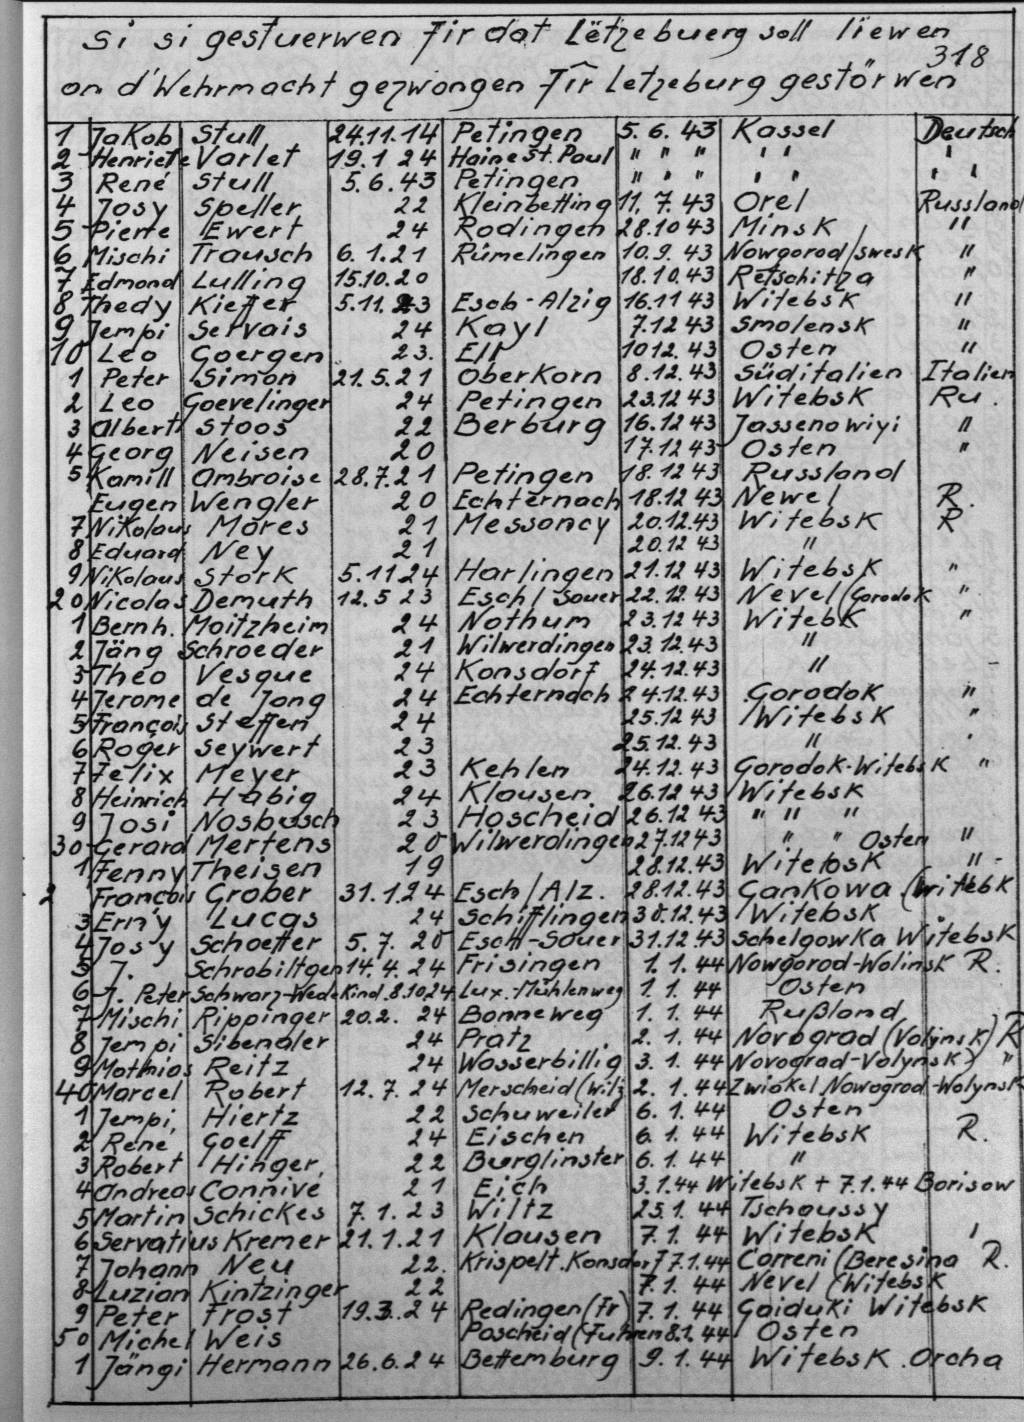 Si si gestuerwen fir dat Lëtzebuerg soll liewen
318
on d'Wehrmacht gezwongen Fîr Letzeburg gestörwen
1 Jakob Stull 24.11.14 Petingen 5. 6. 43 Kassel Deutsch
2 Henriete Varlet 19.1 24 Haine St. Paul " " " " " "
3 René Stull 5.6.43 Petingen " " " " " " "
4 Josy Speller 22 Kleinbetting 11. 7. 43 Orel Russland
5 Pierre Ewert 24 Rodingen 28.10 43 Minsk "
6 Mischi Trausch 6.1.21 Rümelingen 10.9. 43 Nowgorod/Swesk "
7 Edmond Lulling 15.10.20 18.10.43 Retschitza "
8 Thedy Kieffer 5.11.23 Esch-Alzig 16.11 43 Witebsk "
9 Jempi Servais 24 Kayl 7.12 43 Smolensk "
10 Leo Goergen 23. Ell 10 12. 43 Osten "
1 Peter Simon 21.5.21 Oberkorn 8.12.43 Süditalien Italien
2 Leo Goevelinger 24 Petingen 23.12 43 Witebsk Ru.
3 Albert Stoos 22 Berburg 16.12 43 Jassenowiyi "
4 Georg Neisen 20 17.12 43 Osten "
5 Kamill Ambroise 28.7.21 Petingen 18.12 43 Russland
Eugen Wengler 20 Echternach 18.12 43 Newel R.
7 Nikolaus Mores 21 Messancy 20.12.43 Witebsk R
8 Eduard Ney 21 20.12 43 "
9 Nikolaus Stork 5.11 24 Harlingen 21.12 43 Witebsk "
20 Nicolas Demuth 12.5 23 Esch/Sauer 22.12.43 Nevel (Gorodok "
1 Bernh. Moitzheim 24 Nothum 23.12 43 Witebk "
2 Jäng Schroeder 21 Wilwerdingen 23.12.43 "
3 Théo Vesque 24 Konsdorf 24.12.43 " -
4 Jerome de Jong 24 Echternach 24.12.43 Gorodok "
5 François Steffen 24 25.12 43 /Witebsk "
6 Roger Seywert 23 25.12.43 " "
7 Felix Meyer 23 Kehlen 24.12.43 Gorodok-Witebsk "
8 Heinrich Habig 24 Klausen 26.12 43 Witebsk
9 Josi Nosbusch 23 Hoscheid 26.12 43 " " "
30 Gerard Mertens 20 Wilwerdingen 27.12 43 " " Osten "
1 Fenny Theisen 19 28.12.43 Witebsk " -
2 François Grober 31.1.24 Esch/Alz. 28.12.43 Gankowa (Witebk
3 Erny Lucas 24 Schifflingen 30.12.43 Witebsk
4 Josy Schoetter 5.7. 20 Esch-Sauer 31.12.43 Schelgowka Witebsk
5 J. Schrobiltgen 14.4. 24 Frisingen 1. 1. 44 Nowgorod-Wolinsk R.
6 J. Peter Schwarz-Wedekind 8.10.24 Lux.-Mühlenweg 1. 1. 44 Osten
7 Mischi Rippinger 20.2. 24 Bonneweg 1. 1. 44 Rußland
8 Jempi Sibenaler 24 Pratz 2. 1. 44 Novograd (Volynsk) R
9 Mathias Reitz 24 Wasserbillig 3. 1. 44 Novograd-Volynsk) "
40 Marcel Robert 12. 7. 24 Merscheid (Wilz 2. 1. 44 Zwiakel Nowograd-Wolynsk
1 Jempi, Hiertz 22 Schuweiler 6. 1. 44 Osten
2 René Goelff 24 Eischen 6. 1. 44 Witebsk R.
3 Robert Hinger, 22 Burglinster 6. 1. 44 "
4 Andreas Connivé 21 Eich 3.1.44 Witebsk + 7.1.44 Borisow
5 Martin Schickes 7.1.23 Wiltz 25.1. 44 Tschaussy
6 Servatius Kremer 21.1.21 Klausen 7.1. 44 Witebsk '
7 Johann Neu 22. Krispelt.Konsdorf 7.1.44 Correni (Beresina R.
8 Luzian Kintzinger 22 7.1. 44 Nevel (Witebsk
9 Peter Frost 19.3.24 Redingen (Fr) 7.1. 44 Gaiduki Witebsk
50 Michel Weis Poscheid (Fuhren 8.1.44 Osten
1 Jängi Hermann 26.6.24 Bettemburg 9.1. 44 Witebsk.Orcha